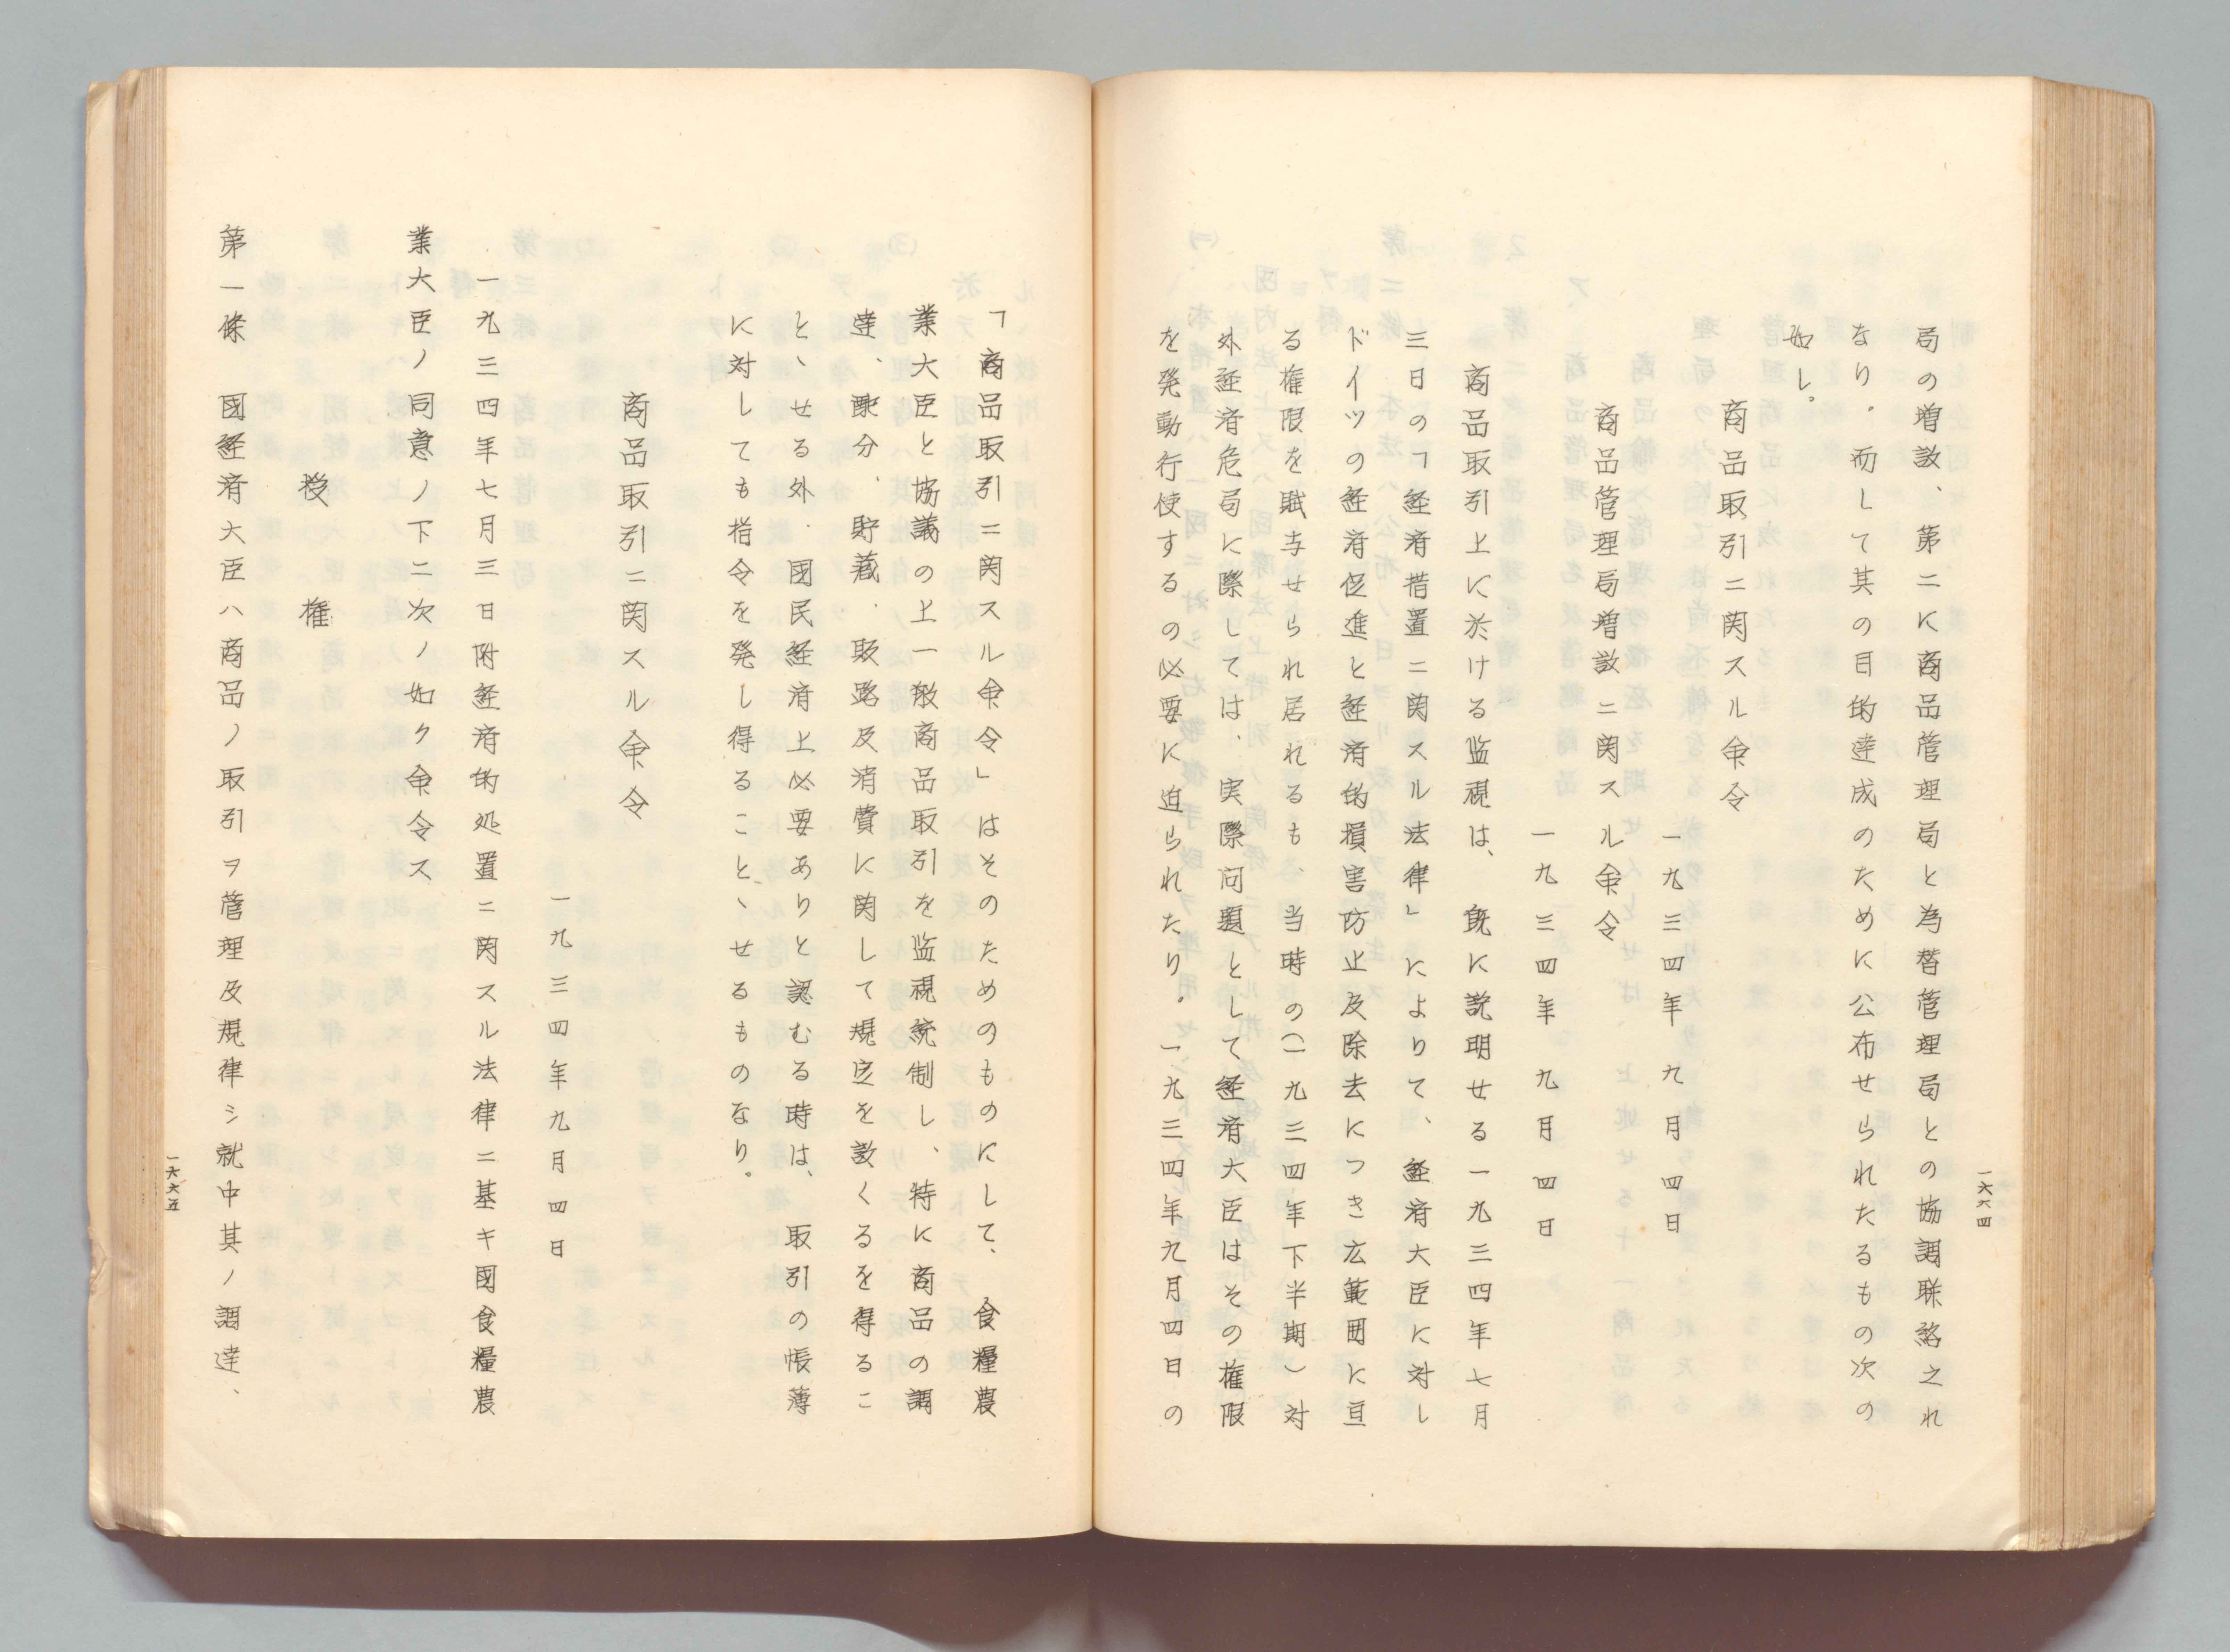 一六六四
局の増設、第二に商品管理局と為替管理局との協調聯絡之れ
なり。而して其の目的達成のために公布せられたるもの次の
如し。
商品取引ニ関スル命令
一九三四年九月四日
商品管理局増設ニ関スル命令
一九三四年九月四日
商品取引上に於ける监視は、既に説明せる一九三四年七月
三日の「経済措置ニ関スル法律」によりて、経済大臣に対し
ドイツの経済促進と経済的損害防止及除去につき広範囲に亘
る権限を賦与せられ居れるも、当時の(一九三四年下半期)対
外経済危局に際しては、実際问題として経済大臣はその権限
を発動行使するの必要に迫られたり。一九三四年九月四日の
「商品取引ニ関スル命令」はそのためのものにして、食糧農
業大臣と協議の上一般商品取引を监視統制し、特に商品の調
達、配分、貯蔵、販路及消費に関して規定を設くるを得るこ
とゝせる外、国民経済上必要ありと認むる時は、取引の帳薄
に対しても指令を発し得ることゝせるものなり。
商品取引ニ関スル命令
一九三四年九月四日
一九三四年七月三日附経済的処置ニ関スル法律ニ基キ國食糧農
業大臣ノ同意ノ下ニ次ノ如ク命令ス
授権
第一條　國経済大臣ハ商品ノ取引ヲ管理及規律シ就中其ノ調達、
一六六五